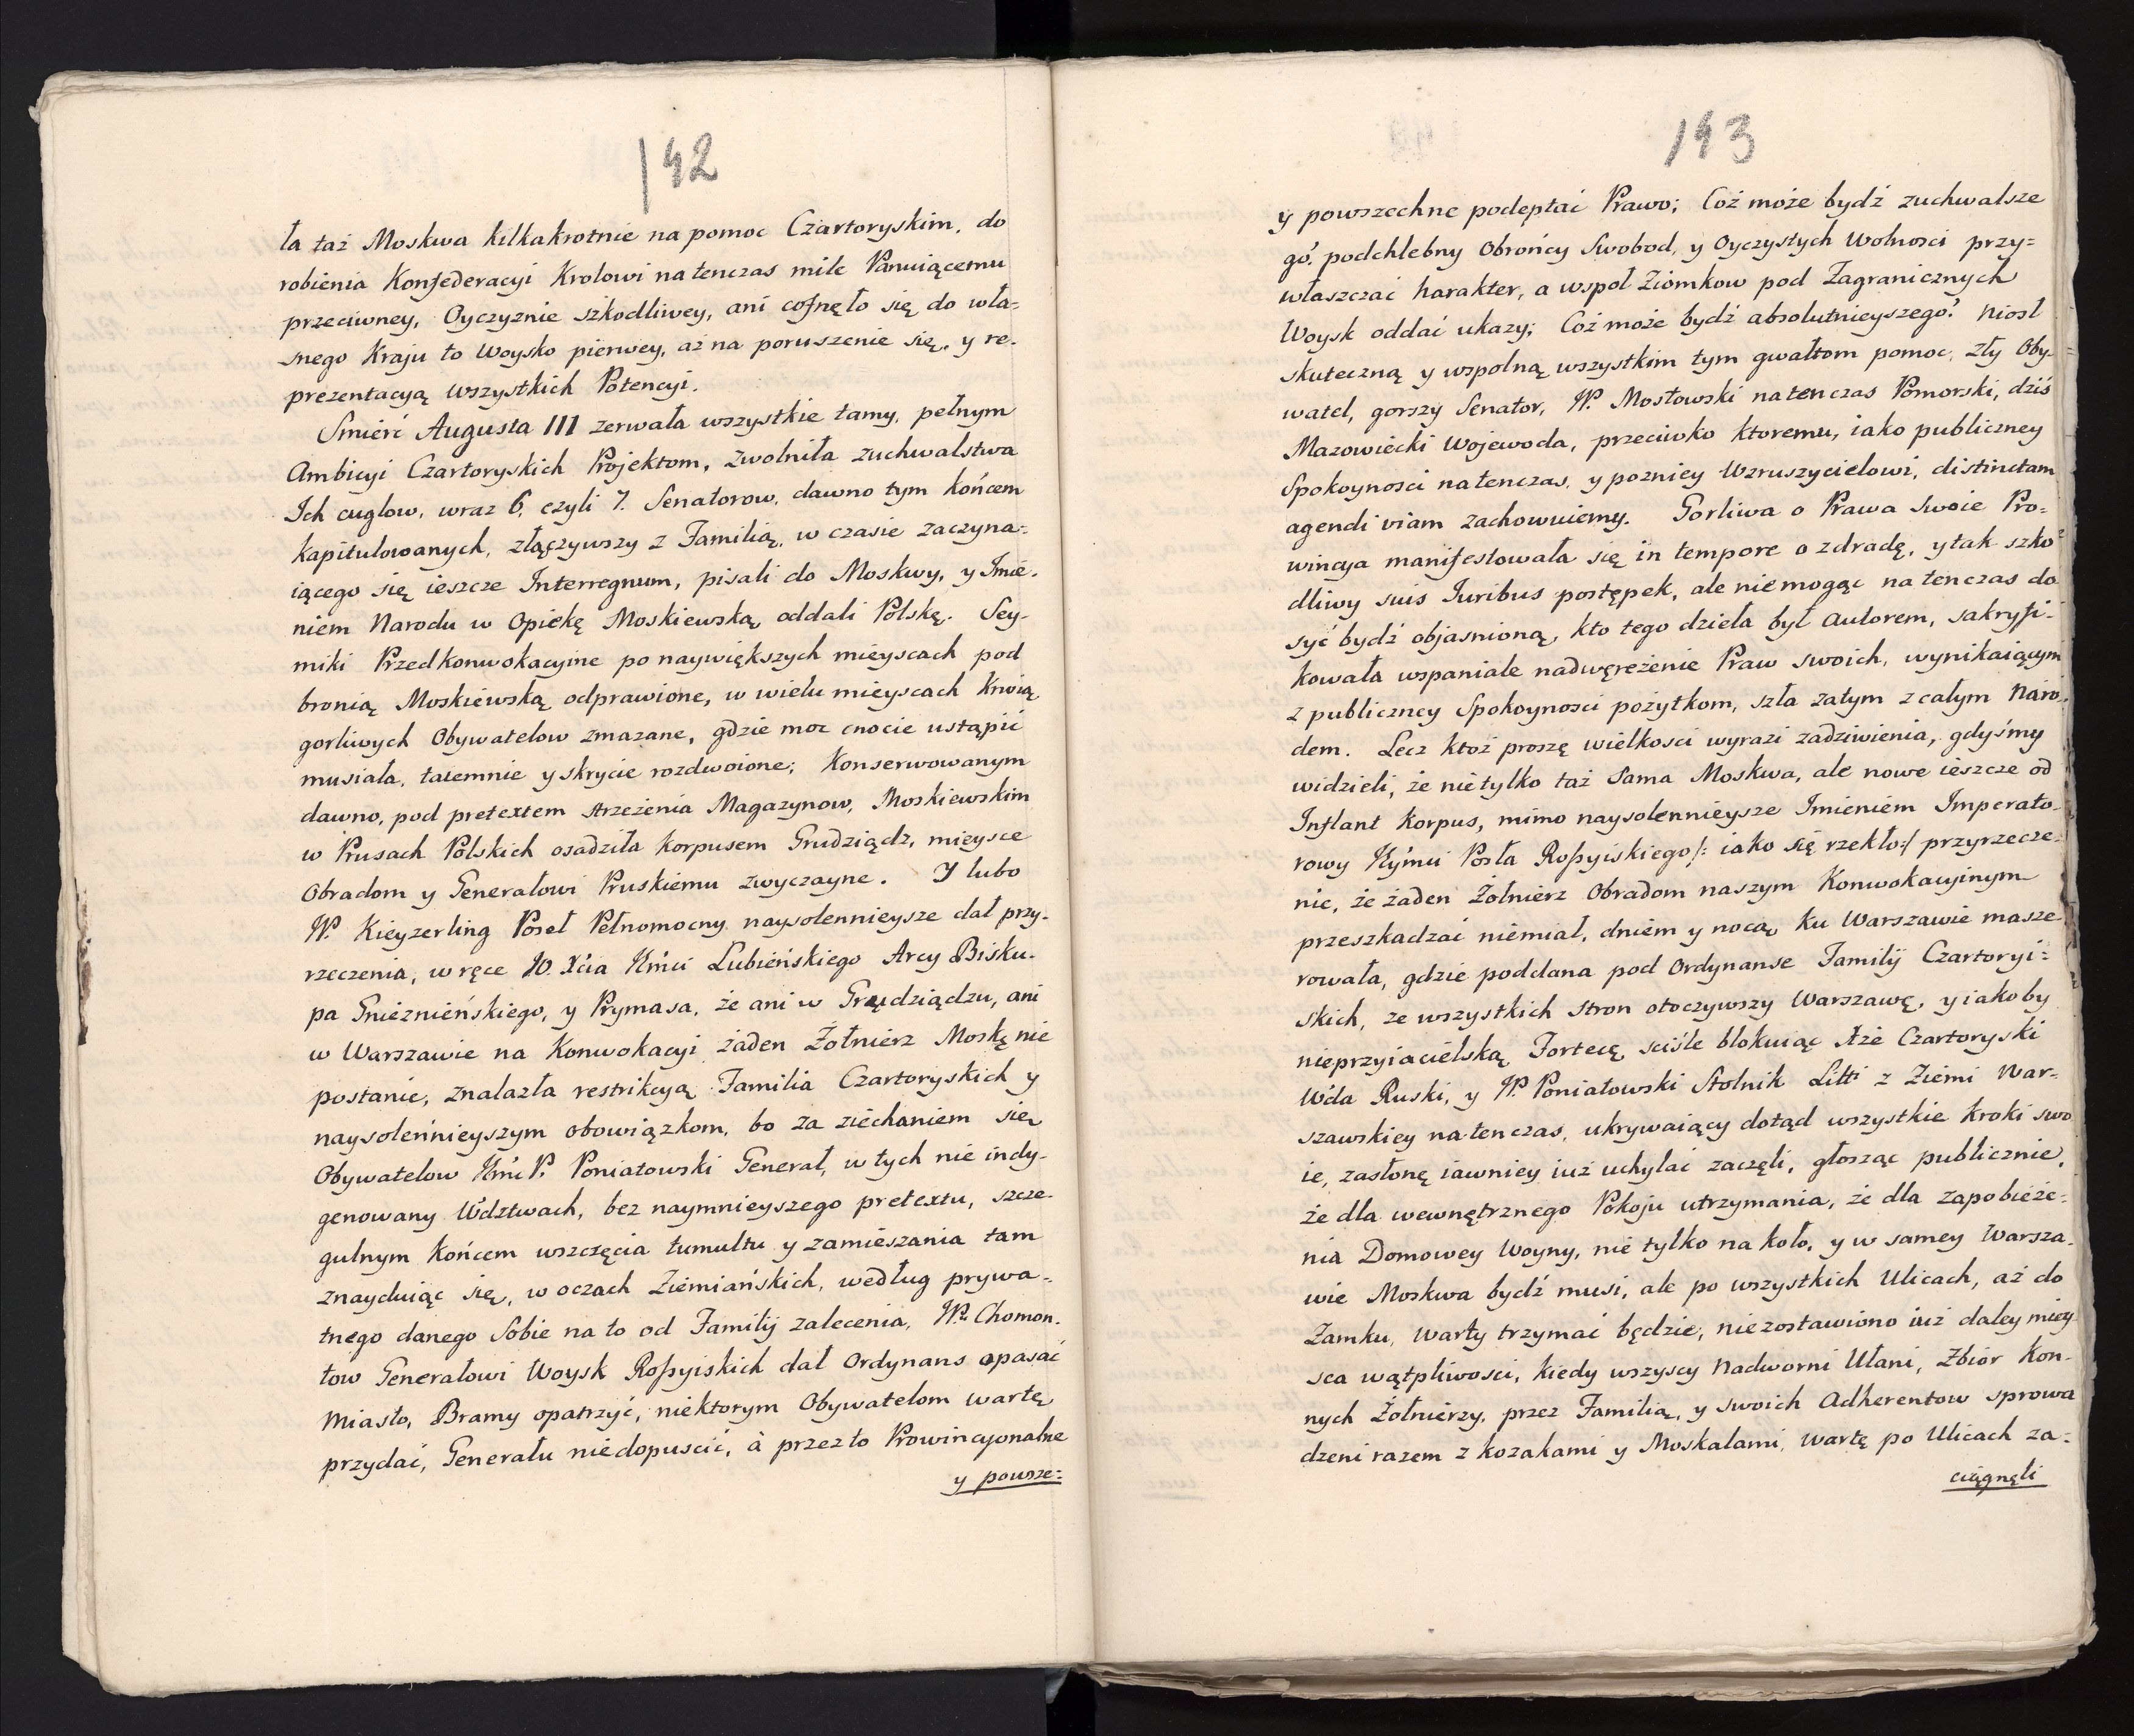 142
ła taż Moskwa kilkakrotnie na pomoc Czartoryskim, do
robienia Konfederacyi Krolowi natenczas mile Panuiącemu
przeciwney, Oyczyznie szkodliwey, ani cofnęło się do wła=
snego Kraju to Woysko pierwey, aż na poruszenie się, y re-
prezentacyą wszystkich Potencyi.
Smierć Augusta III zerwała wszystkie tamy, pełnym
Ambicyi Czartoryskich Projektom, zwolniła zuchwalstwa
Ich cuglow, wraz 6, czyli 7. Senatorow, dawno tym końcem
kapitulowanych, złączywszy z Familią, w czasie zaczyna=
iącego się ieszcze Interregnum, pisali do Moskwy, y Imie-
niem Narodu w Opiekę Moskiewską oddali Polskę. Sey-
miki Przedkonwokacyine po naywiększych mieyscach pod
bronią Moskiewską odprawione, w wielu mieyscach Krwią
gorliwych Obywatelow zmazane, gdzie moc cnocie ustąpić
musiała, taiemnie y skrycie rozdwoione; Konserwowanym
dawno, pod pretextem strzeżenia Magazynow, Moskiewskim
w Prusach Polskich osadziła korpusem Grudziądz, mieysce
Obradom y Generałowi Pruskiemu zwyczayne. I lubo
W. Kieyzerling Poseł Pełnomocny naysolennieysze dał przy-
rzeczenia, w ręce JO. Xćia Jmći Lubieńskiego Arcy Bisku-
pa Gnieznieńskiego, y Prymasa, że ani w Grudziądzu, ani
w Warszawie na Konwokacyi żaden Żołnierz Moskę nie
postanie, znalazła restrikcyą Familia Czartoryskich y
naysolennieyszym obowiązkom, bo za ziechaniem się
Obywatelow Jmć P. Poniatowski Generał, w tych nie indy-
genowany Wdztwach, bez naymnieyszego pretextu, szcze-
gulnym końcem wszczęcia tumultu y zamieszania tam
znayduiąc się, w oczach Ziemiańskich, według prywa-
tnego danego Sobie na to od Familij zalecenia, W. Chomon-
tow Generałowi Woysk Roßyiskich dał Ordynans opasać
Miasto, Bramy opatrzyć, niektorym Obywatelom wartę
przydać, Generału niedopuscić, à przez to Prowincyonalne
y powsze=
143
y powszechne podeptać Prawo; Coż może bydź zuchwalsze
gó? podchlebny Obrońcy Swobod, y Oyczystych Wolnosci przy=
właszczać harakter, a wspoł Ziomkow pod Zagranicznych
Woysk oddać ukazy; Coż może bydź absolutnieyszegó? Niosł
skuteczną y wspolną wszystkim tym gwałtom pomoc, zły Oby-
watel, gorszy Senator, W. Mostowski natenczas Pomorski, dziś
Mazowiecki Wojewoda, przeciwko ktoremu, iako publiczney
Spokoynosci natenczas, y pozniey Wzruszycielowi, distinctam
agendi viam zachowuiemy. Gorliwa o Prawa Swoie Pro=
wincya manifestowała się in tempore o zdradę, y tak szko=
dliwy suis Juribus postępek, ale niemogąc na tenczas do
syć bydź objasnioną, kto tego dzieła był Autorem, sakryfi-
kowała wspaniale nadwęrężenie Praw swoich, wynikaiącym
z publiczney Spokoynosci pożytkom, szła zatym z całym Naro-
dem. Lecz ktoż proszę wielkosci wyrazi zadziwienia, gdyśmy
widzieli, że nietylko taż Sama Moskwa, ale nowe ieszcze od
Inflant Korpus, mimo naysolennieysze Imieniem Imperato-
rowy Jeymci Posła Roßyiskiego /: iako się rzekło :/ przyrzecze-
nie, że żaden Żołnierz Obradom naszym Konwokacyinym
przeszkadzać niemiał, dniem y nocą ku Warszawie masze
rowała, gdzie poddana pod Ordynanse Familij Czartoryi=
skich, ze wszystkich stron otoczywszy Warszawę, y iakoby
nieprzyiacielską Fortecę, sciśle blokuiąc Xże Czartoryski
Wda Ruski, y W. Poniatowski Stolnik Litti z Ziemi War-
szawskiey na tenczas, ukrywaiący dotąd wszystkie kroki swo
ie, zasłonę iawniey iuż uchylać zaczęli, głosząc publicznie,
że dla wewnętrznego Pokoju utrzymania, że dla zapobieże-
nia Domowey Woyny, nie tylko na koło, y w samey Warsza-
wie Moskwa bydź musi, ale po wszystkich Ulicach, aż do
Zamku, Warty trzymać będzie; niezostawiono iuż daley miey
sca wątpliwosci, kiedy wszyscy Nadworni Ułani, Zbior Kon-
nych Żołnierzy, przez Familią, y swoich Adherentow sprowa
dzeni razem z kozakami y Moskalami, Wartę po Ulicach za-
ciągnęli